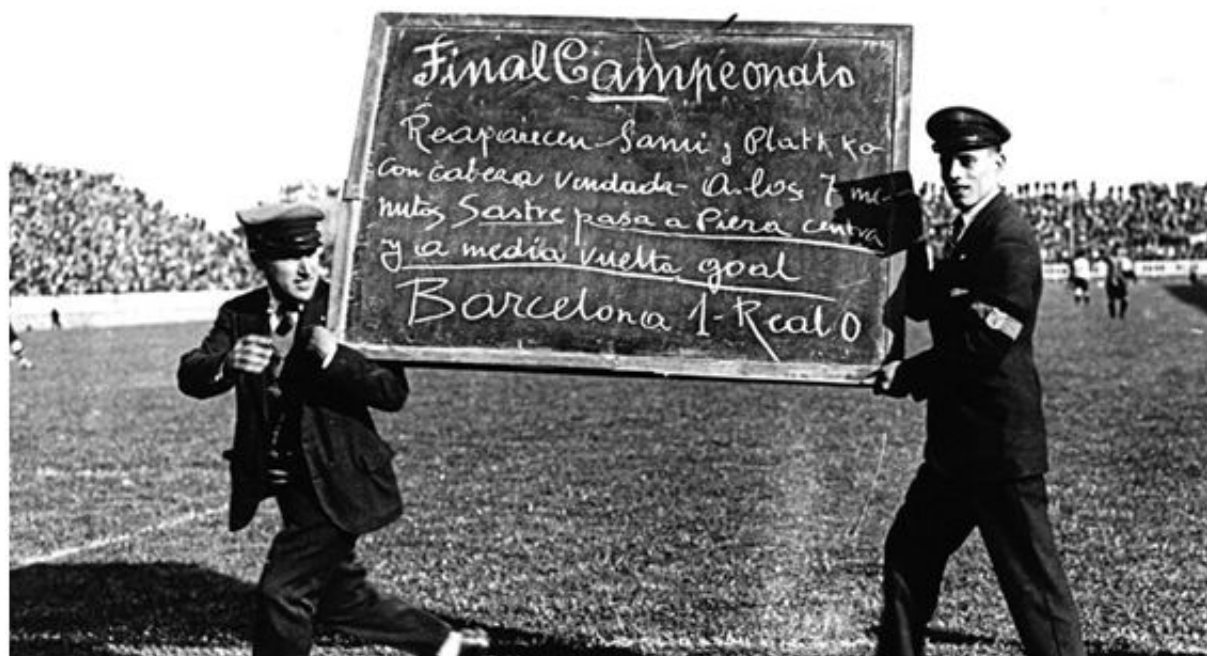 Final Campeonato
Reaparecen Sami y Platkko
con cabeza vendada - a los 7 mi-
nutos Sastre pasa a Piera centra
y a media vuelta goal
Barcelona 1 - Real 0